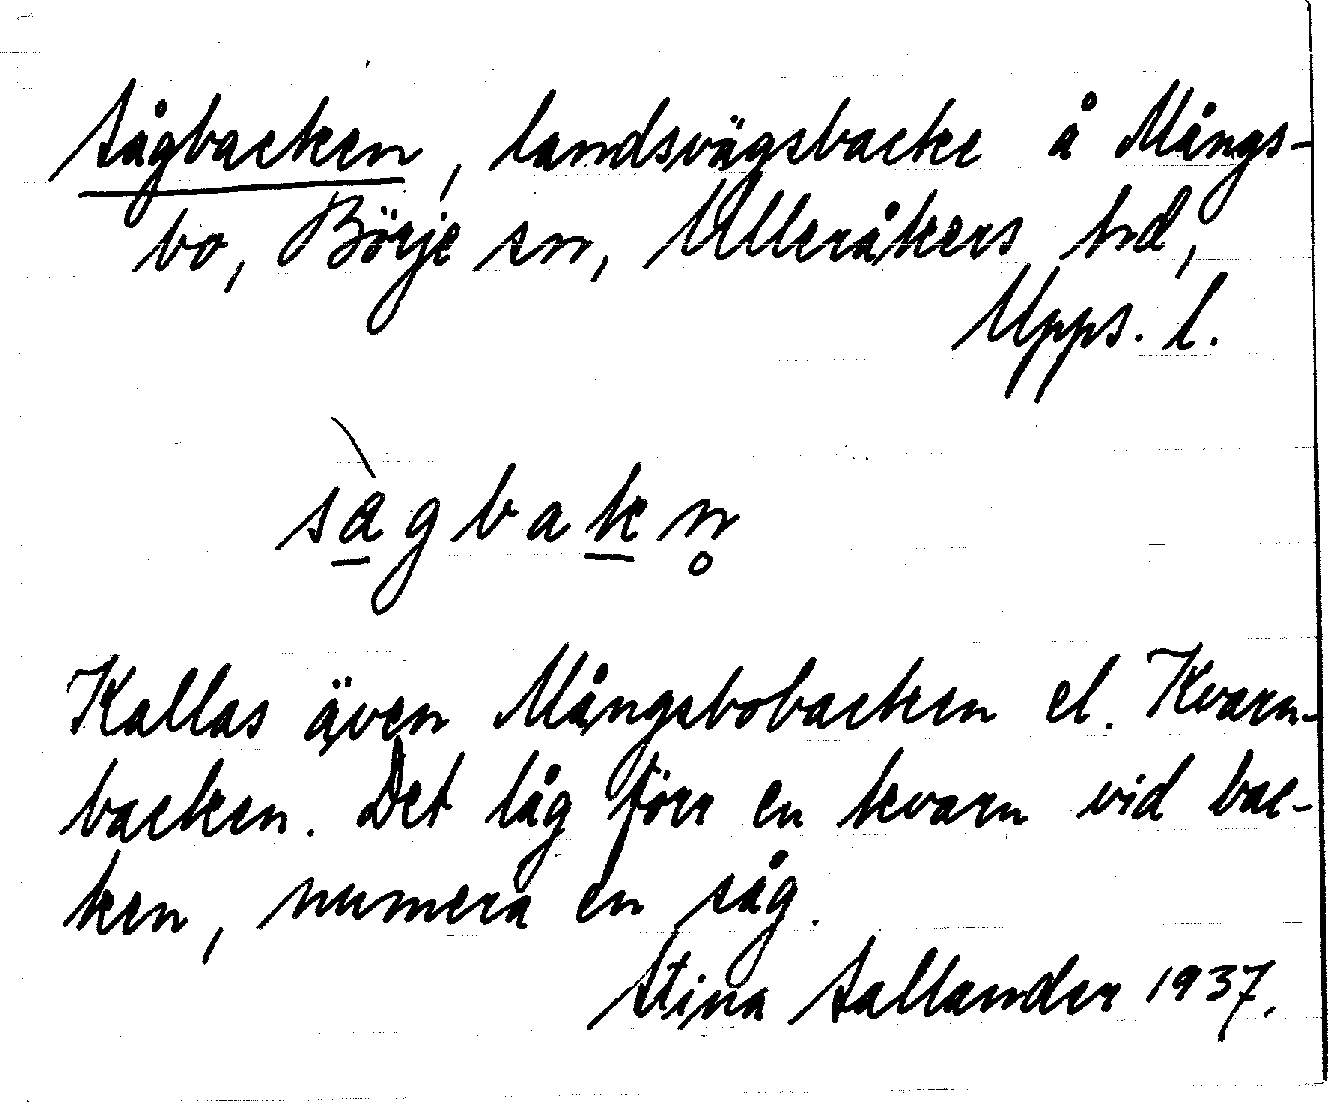 Sågbacken, landsvägsbacke å Mångs-
bo, Börje sn, Ulleråkers hd,
Upps. l.
sàgbakn̥
Kallas även Mångsbobacken el. Kvarn-
backen. Det låg förr en kvarn vid bac-
ken, numera en såg.
Stina Sallander 1937.